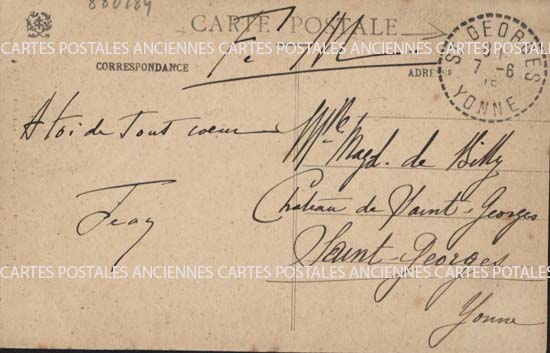 880184
CARTE POSTALE
CORRESPONDANCE
ADRESSE
ST GEORGES
7-6
YONNE
A toi de tout coeur
Jean
Mlle Magd. de Billy
Chateau de Saint-Georges
Saint-Georges
Yonne
CARTES POSTALES ANCIENNES CARTES POSTALES ANCIENNES CARTES POSTALES
CARTES POSTALES ANCIENNES CARTES POSTALES ANCIENNES CARTES POSTALES